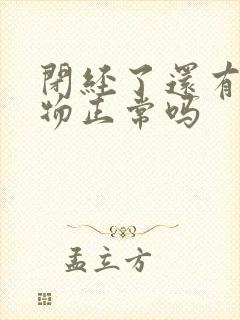 閉經了還有
物正常吗
孟立方